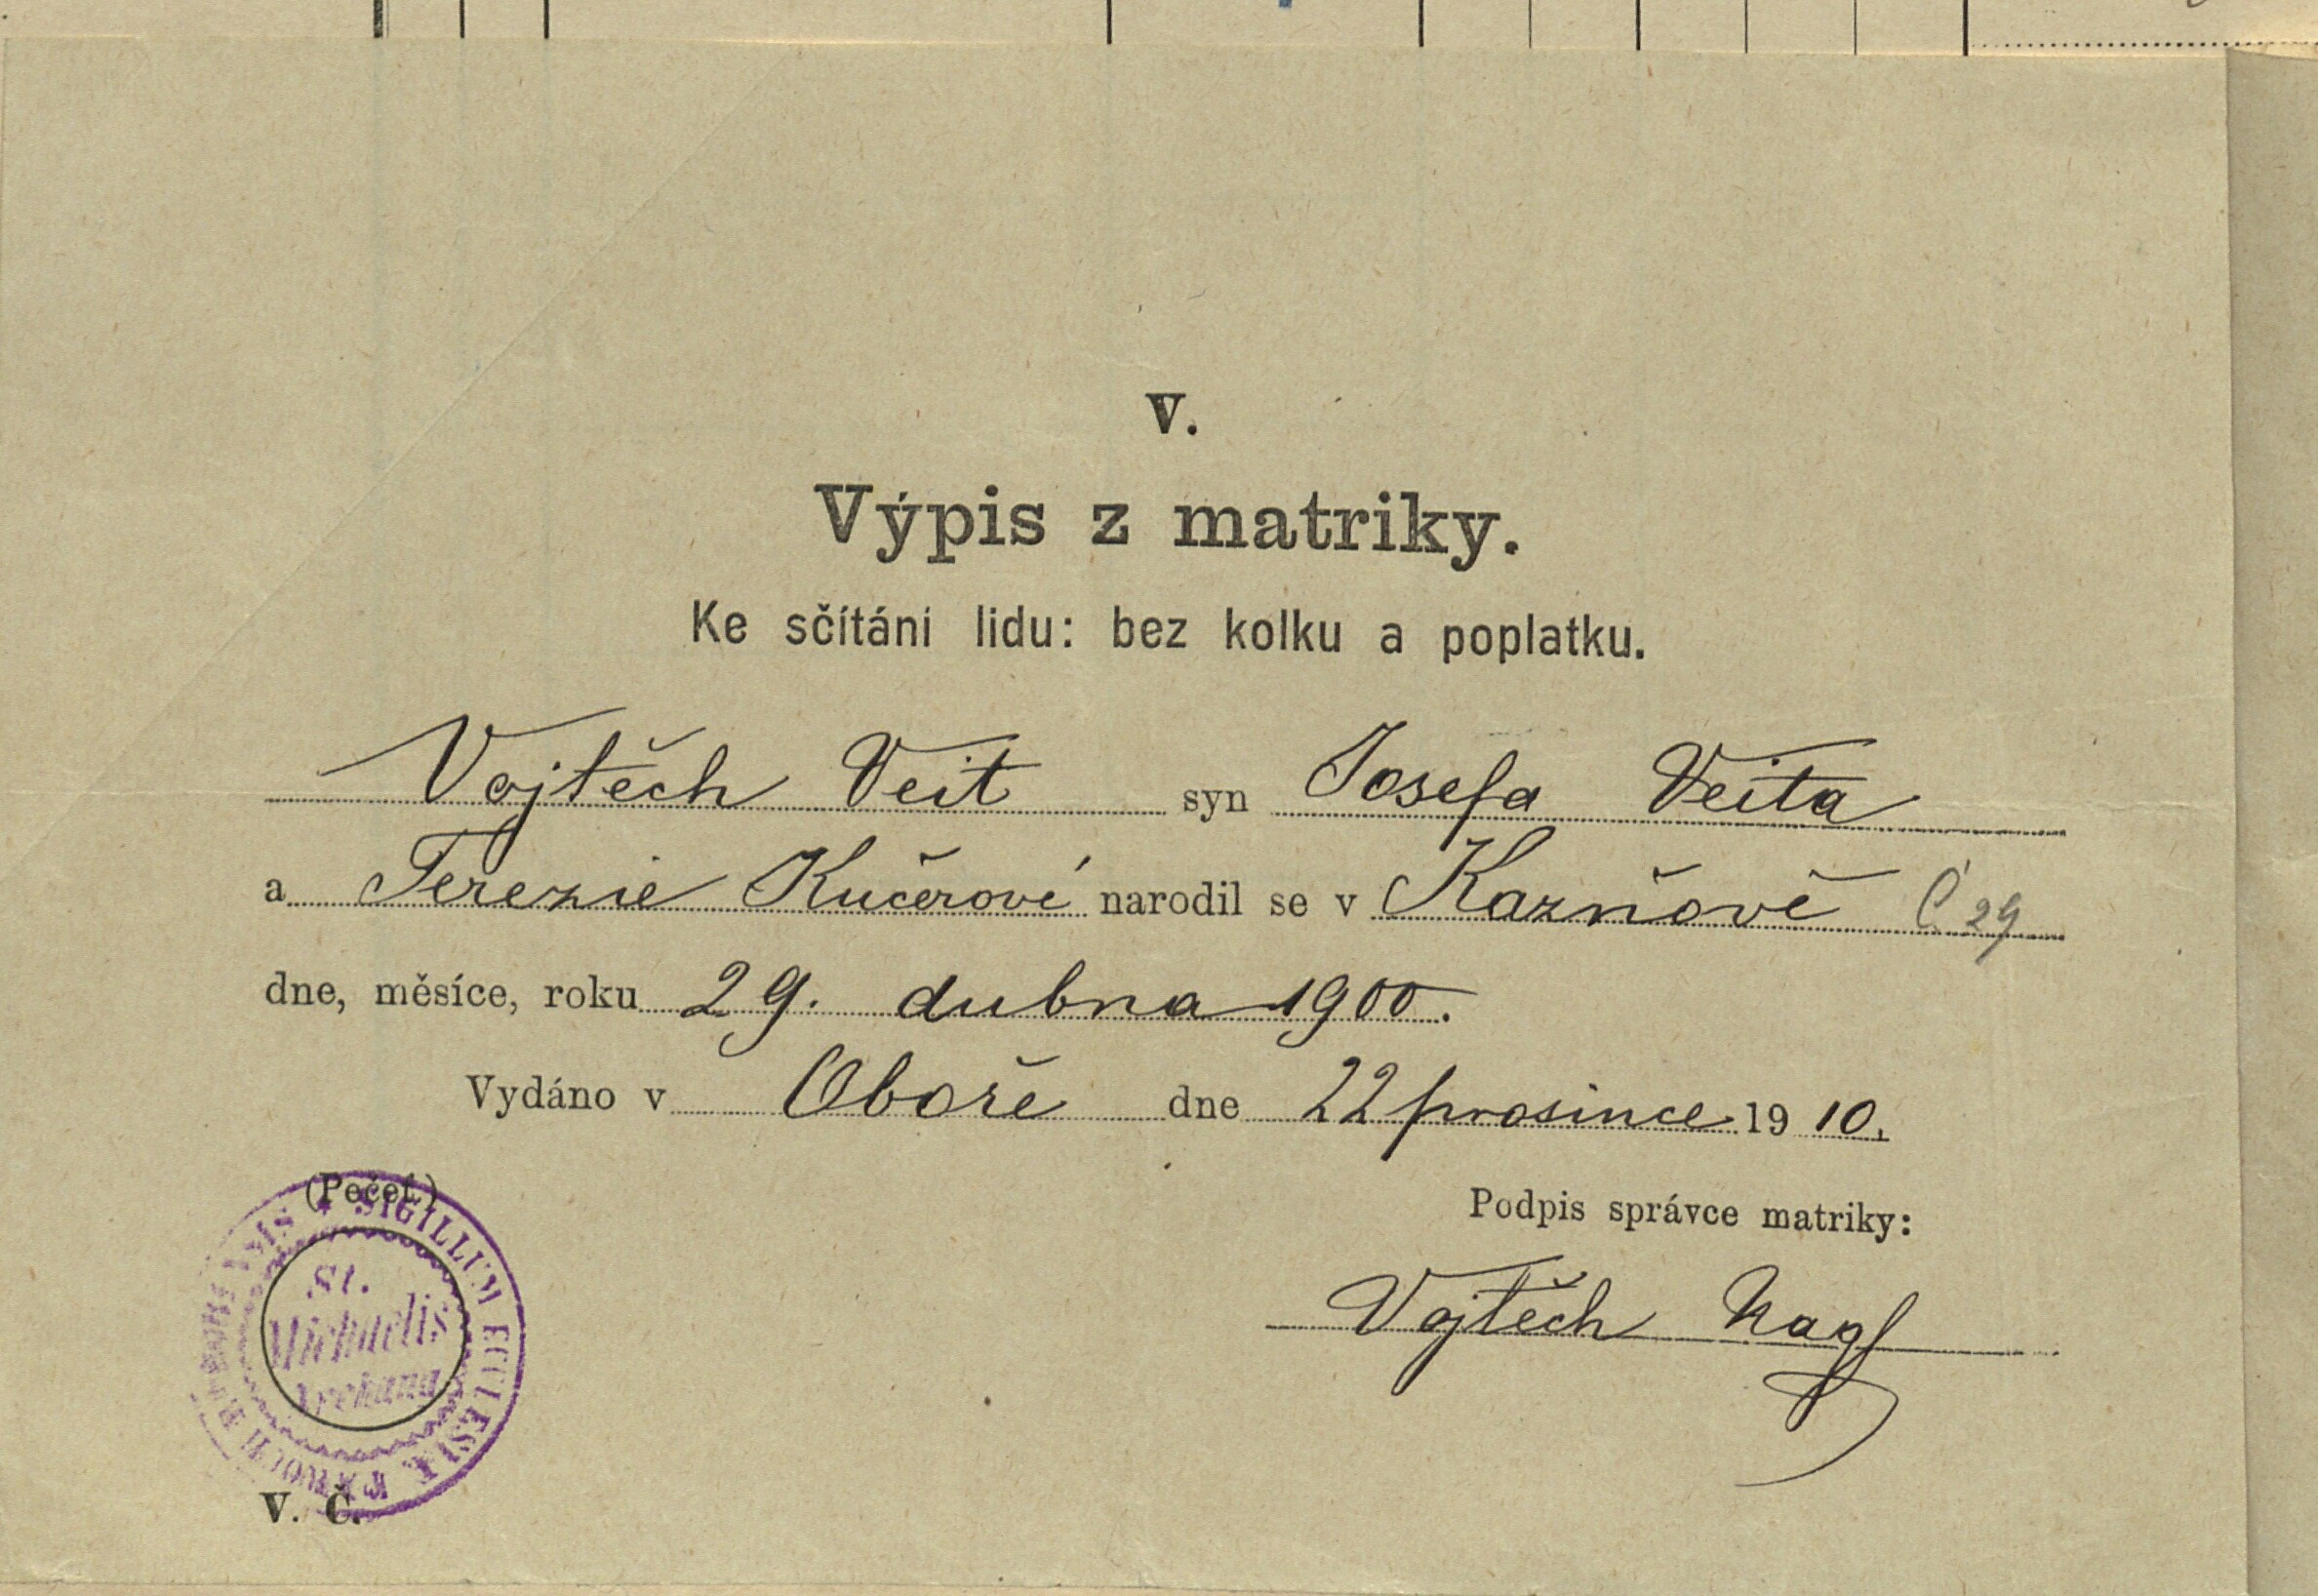 V.
Výpis z matriky.
Ke sčítání lidu: bez kolku a poplatku.
Vojtěch Veit syn Josefa Veita
a Terezie Kučerové narodil se v Kazňově Č 29
dne, měsíce, roku 29. dubna 1900.
Vydáno v Oboře dne 22 prosince 1910.
(Pečeť)
SIGILLUM ECCLESIÆ PAROCH
St.
Michaelis
Archang
Podpis správce matriky:
Vojtěch Nagl
V. Č.